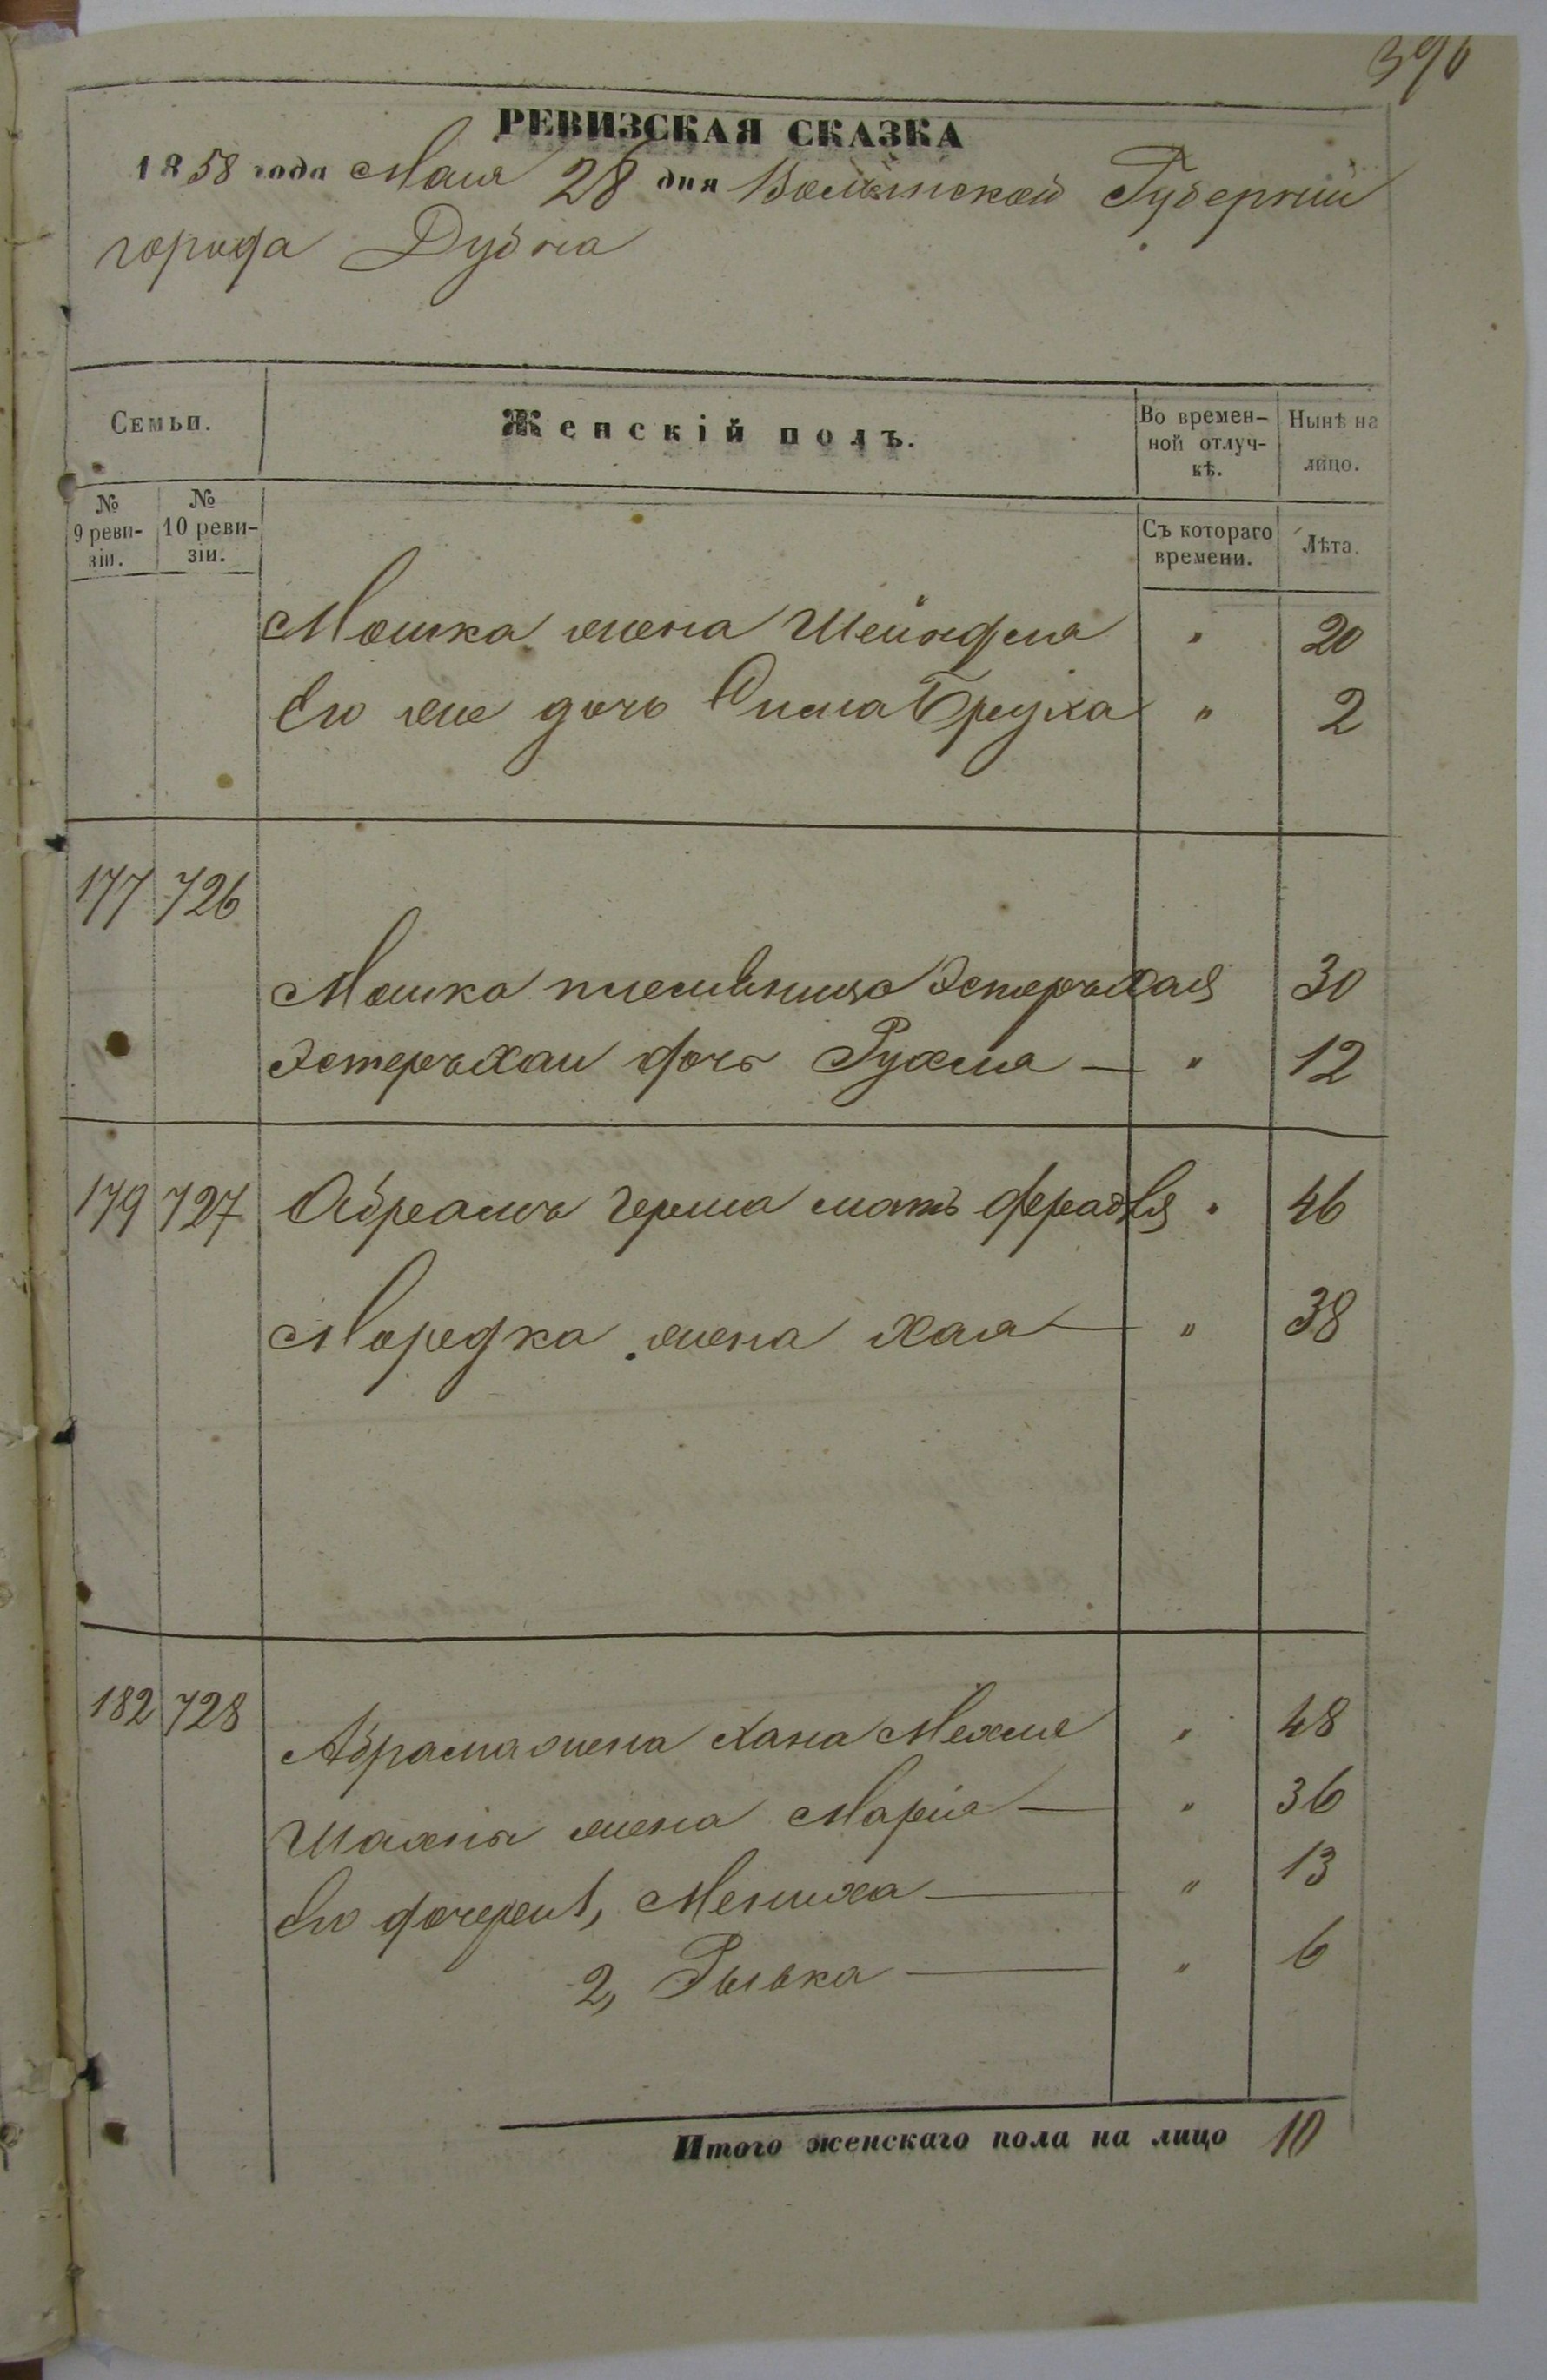 396
РЕВИЗСКАЯ СКАЗКА
1858 года Мая 28 дня Волынской Губернии
города Дубна
Семьи.
Женскій полъ.
Во времен-
ной отлуч-
кѣ.
Нынѣ на
лицо.
№
9 реви-
зіи.
№
10 реви-
зіи.
Съ котораго
времени.
Лѣта.
Мошка жена Шейндля " 20
Его же дочь Бруха " 2
177 726
Мошка племѣнница Эстеръхая 30
Эстеръхаи дочь Рухля — " 12
179 727 Абрамъ Герша мать " 46
Мордка жена Хая — " 38
182 728
Абрама жена Хана " 48
Шахны жена Марія — " 36
Его дочери 1, Мениха — " 13
2, Рывка — " 6
Итого женскаго пола на лицо 10